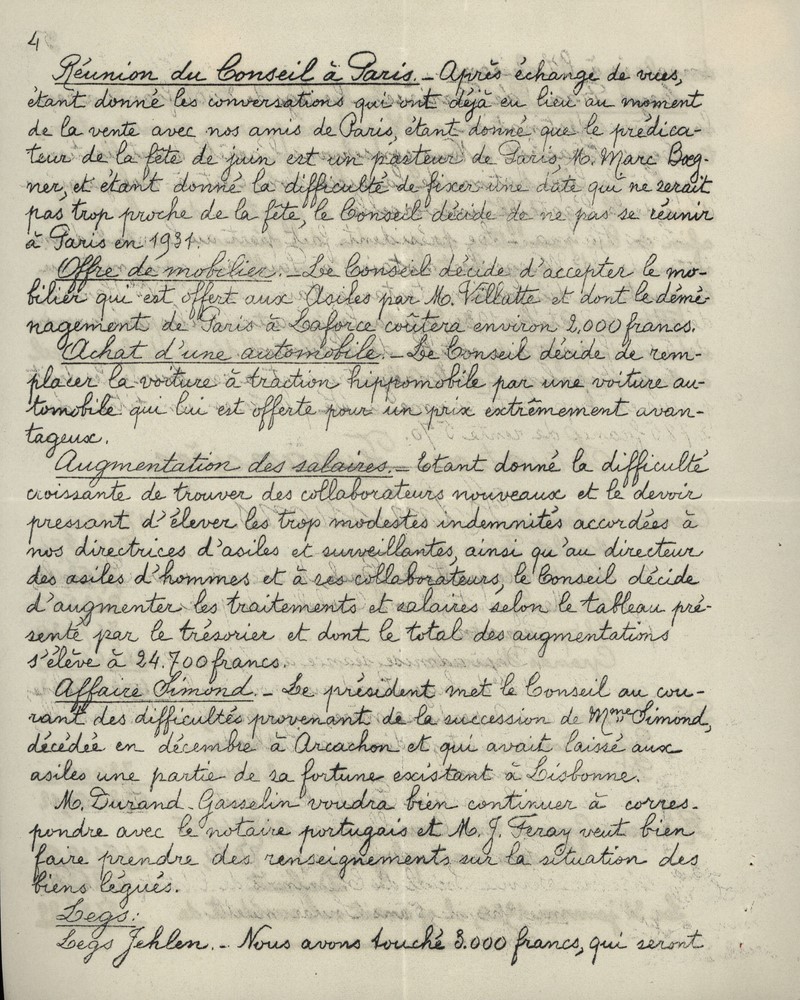 4
Réunion du Conseil à Paris. - Après échange de vues,
étant donné les conversations qui ont déjà eu lieu au moment
de la vente avec nos amis de Paris, étant donné que le prédica-
teur de la fête de juin est un pasteur de Paris, M. Marc Boeg-
ner, et étant donné la difficulté de fixer une date qui ne serait
pas trop proche de la fête, le Conseil décide de ne pas se réunir
à Paris en 1931.
Offre de mobilier. - Le Conseil décide d'accepter le mo-
bilier qui est offert aux Asiles par M. Villatte et dont le démé-
nagement de Paris à Laforce coûtera environ 2,000 francs.
Achat d'une automobile. - Le Conseil décide de rem-
placer la voiture à traction hippomobile par une voiture au-
tomobile qui lui est offerte pour un prix extrêmement avan-
tageux.
Augmentation des salaires. - Etant donné la difficulté
croissante de trouver des collaborateurs nouveaux et le devoir
pressant d'élever les trop modestes indemnités accordées à
nos directrices d'asiles et surveillantes, ainsi qu'au directeur
des asiles d'hommes et à ses collaborateurs, le Conseil décide
d'augmenter les traitements et salaires selon le tableau pré-
senté par le trésorier et dont le total des augmentations
s'élève à 24.700 francs.
Affaire Simond. - Le président met le Conseil au cou-
rant des difficultés provenant de la succession de Mme Simond,
décédée en décembre à Arcachon et qui avait laissé aux
asiles une partie de sa fortune existant à Lisbonne.
M. Durand-Gasselin voudra bien continuer à corres-
pondre avec le notaire portugais et M. J. Feray veut bien
faire prendre des renseignements sur la situation des
biens légués.
Legs:
Legs Jehlen. - Nous avons touché 3.000 francs, qui seront